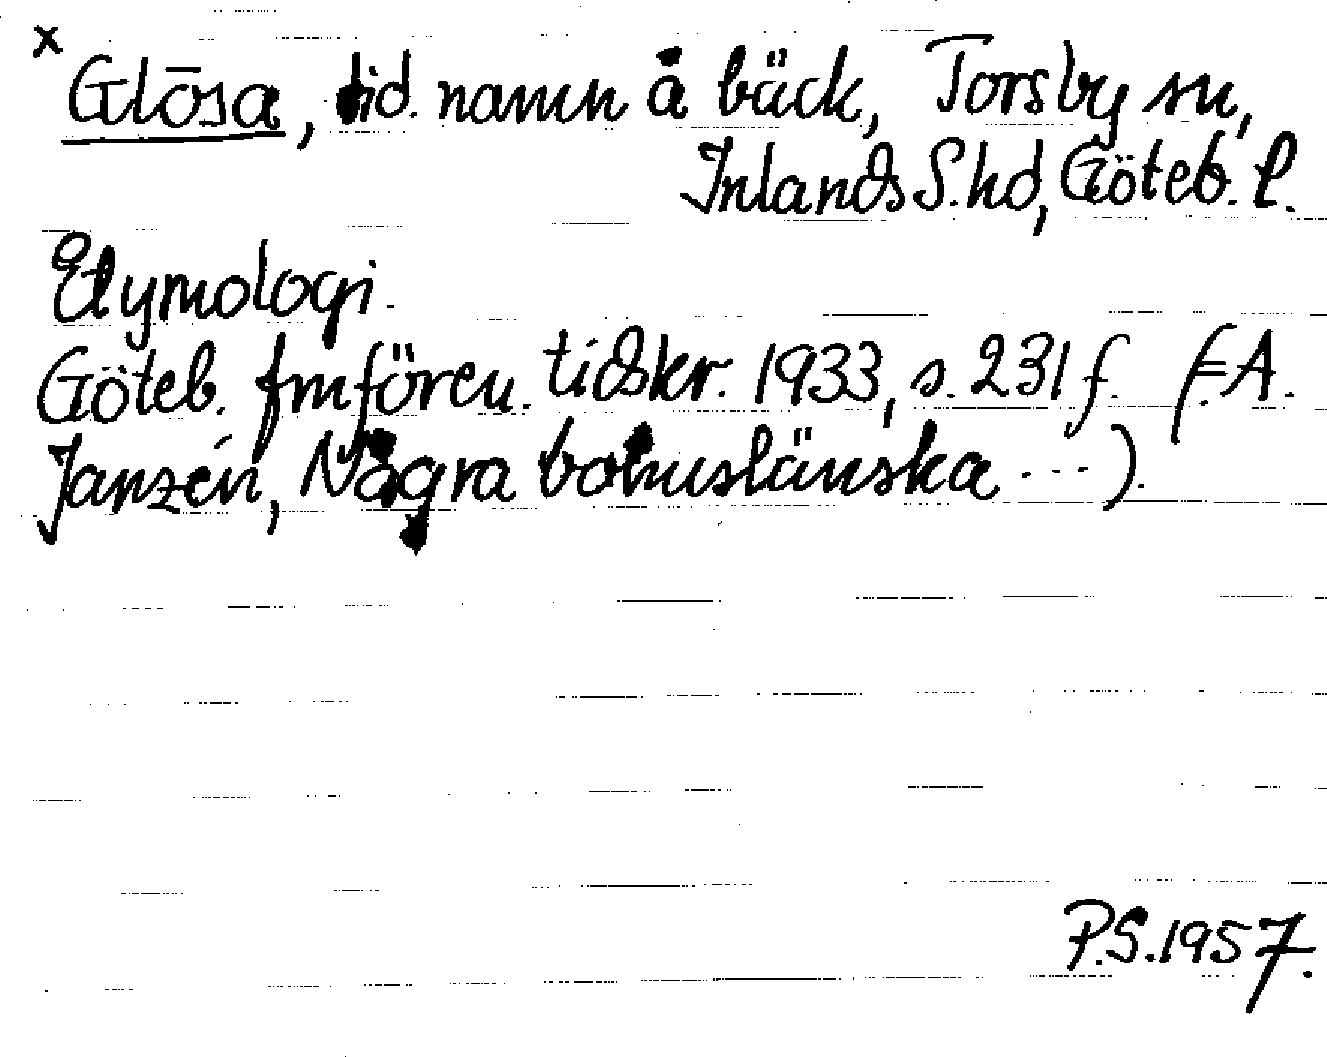 x Glōsa, tid. namn å bäck, Torsby sn,
Inlands S. hd, Göteb. l.
Etymologi.
Göteb. fmfören. tidskr. 1933, s. 231 f. (= A.
Janzén, Några bohuslänska ...).
P.S. 1957.